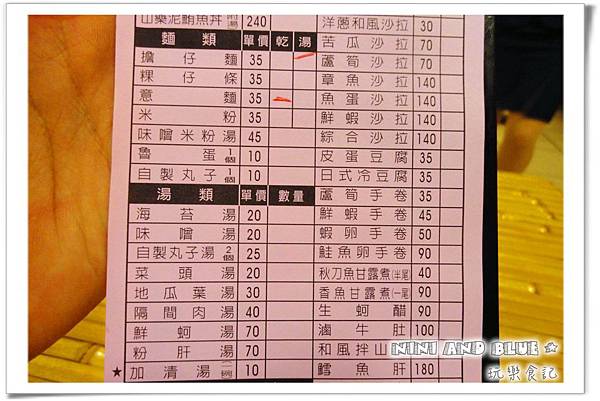 山藥泥鮪魚丼 附湯 240
麵類 單價 乾 湯
擔仔麵 35
粿仔條 35
意麵 35
米粉 35
味噌米粉湯 45
魯蛋 1個 10
自製丸子 1個 10
湯類 單價 數量
海苔湯 20
味噌湯 20
自製丸子湯 2個 25
菜頭湯 20
地瓜葉湯 30
隔間肉湯 40
鮮蚵湯 70
粉肝湯 70
★ 加清湯 一碗 10
洋蔥和風沙拉 30
苦瓜沙拉 70
蘆筍沙拉 70
章魚沙拉 140
魚蛋沙拉 140
鮮蝦沙拉 140
綜合沙拉 140
皮蛋豆腐 35
日式冷豆腐 35
蘆筍手卷 35
鮮蝦手卷 45
蝦卵手卷 50
鮭魚卵手卷 90
秋刀魚甘露煮(半尾) 40
香魚甘露煮(一尾) 90
生蚵醋 90
滷牛肚 100
和風拌山
鱈魚肝 180
NINI AND BLUE
玩樂食記